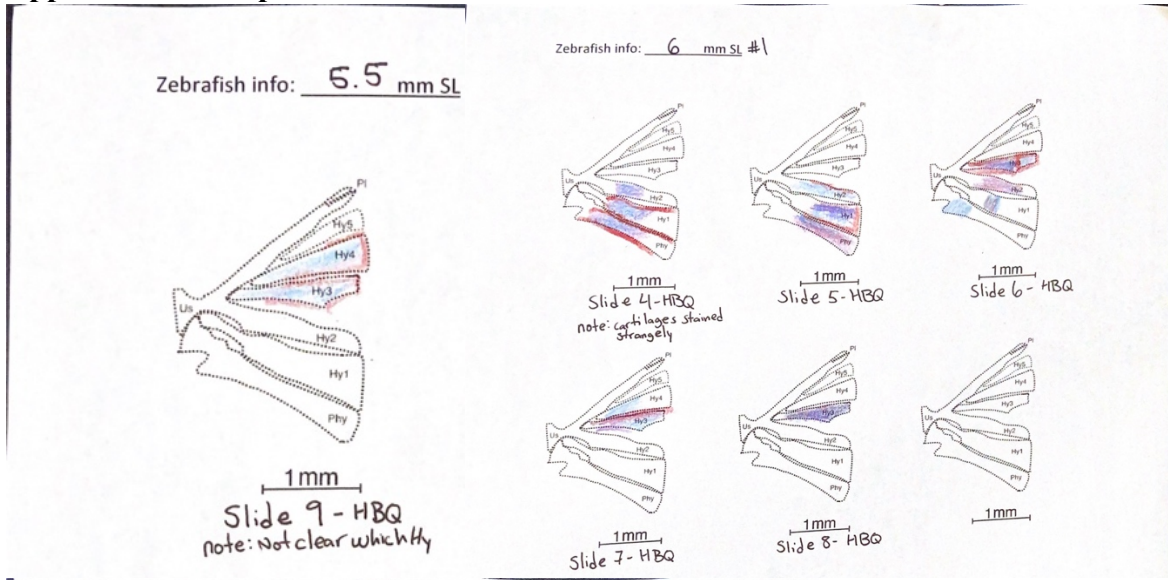 Zebrafish info: 5.5 mm SL
Pl
Hy5
Hy4
Hy3
Us
Hy2
Hy1
Phy
1mm
Slide 9 - HBQ
note: Not clear which Hy
Zebrafish info: 6 mm SL #1
Pl
Hy5
Hy4
Hy3
Us
Hy2
Hy1
Phy
1mm
Slide 4-HBQ
note: cartilages stained
strangely
Pl
Hy5
Hy4
Hy3
Us
Hy2
Hy1
Phy
1mm
Slide 5-HBQ
Pl
Hy5
Hy4
Us
Hy2
Hy1
Phy
1mm
Slide 6-HBQ
Pl
Hy5
Hy4
Hy3
Us
Hy2
Hy1
Phy
1mm
Slide 7-HBQ
Pl
Hy5
Hy4
Hy3
Us
Hy2
Hy1
Phy
1mm
Slide 8-HBQ
Pl
Hy5
Hy4
Hy3
Us
Hy2
Hy1
Phy
1mm